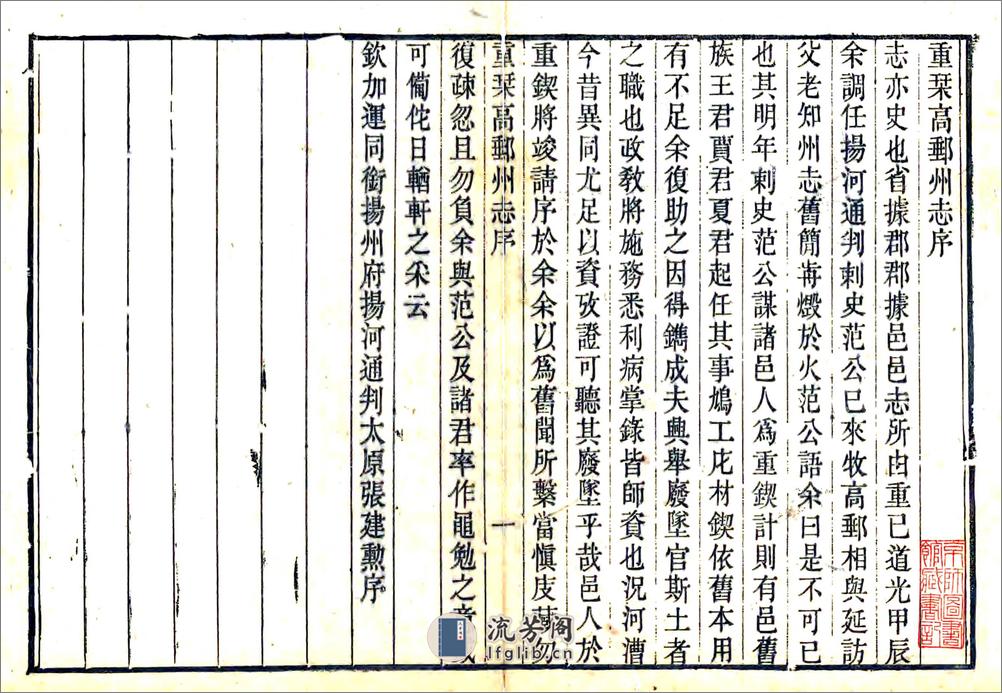 重栞高郵州志序
志亦史也省據郡郡據邑邑志所由重已道光甲辰
余調任揚河通判刺史范公已來牧高郵相與延訪
父老知州志舊簡毐燬於火范公語余曰是不可已
也其明年刺史范公謀諸邑人爲重鍥計則有邑舊
族王君賈君夏君起任其事鳩工庀材鍥依舊本用
有不足余復助之因得鐫成夫興舉廢墜官斯土者
之職也政敎將施務悉利病掌錄皆師資也況河漕
今昔異同尤足以資攷證可聽其廢墜乎哉邑人於
重鍥將竣請序於余余以爲舊聞所繫當愼庋藏勿
重栞高郵州志序
一
復疎忽且勿負余與范公及諸君率作黽勉之意
可僃佗日輶軒之采云
欽加運同銜揚州府揚河通判太原張建勲序
京師圖書館藏書記
流芳阁
lfglib.cn